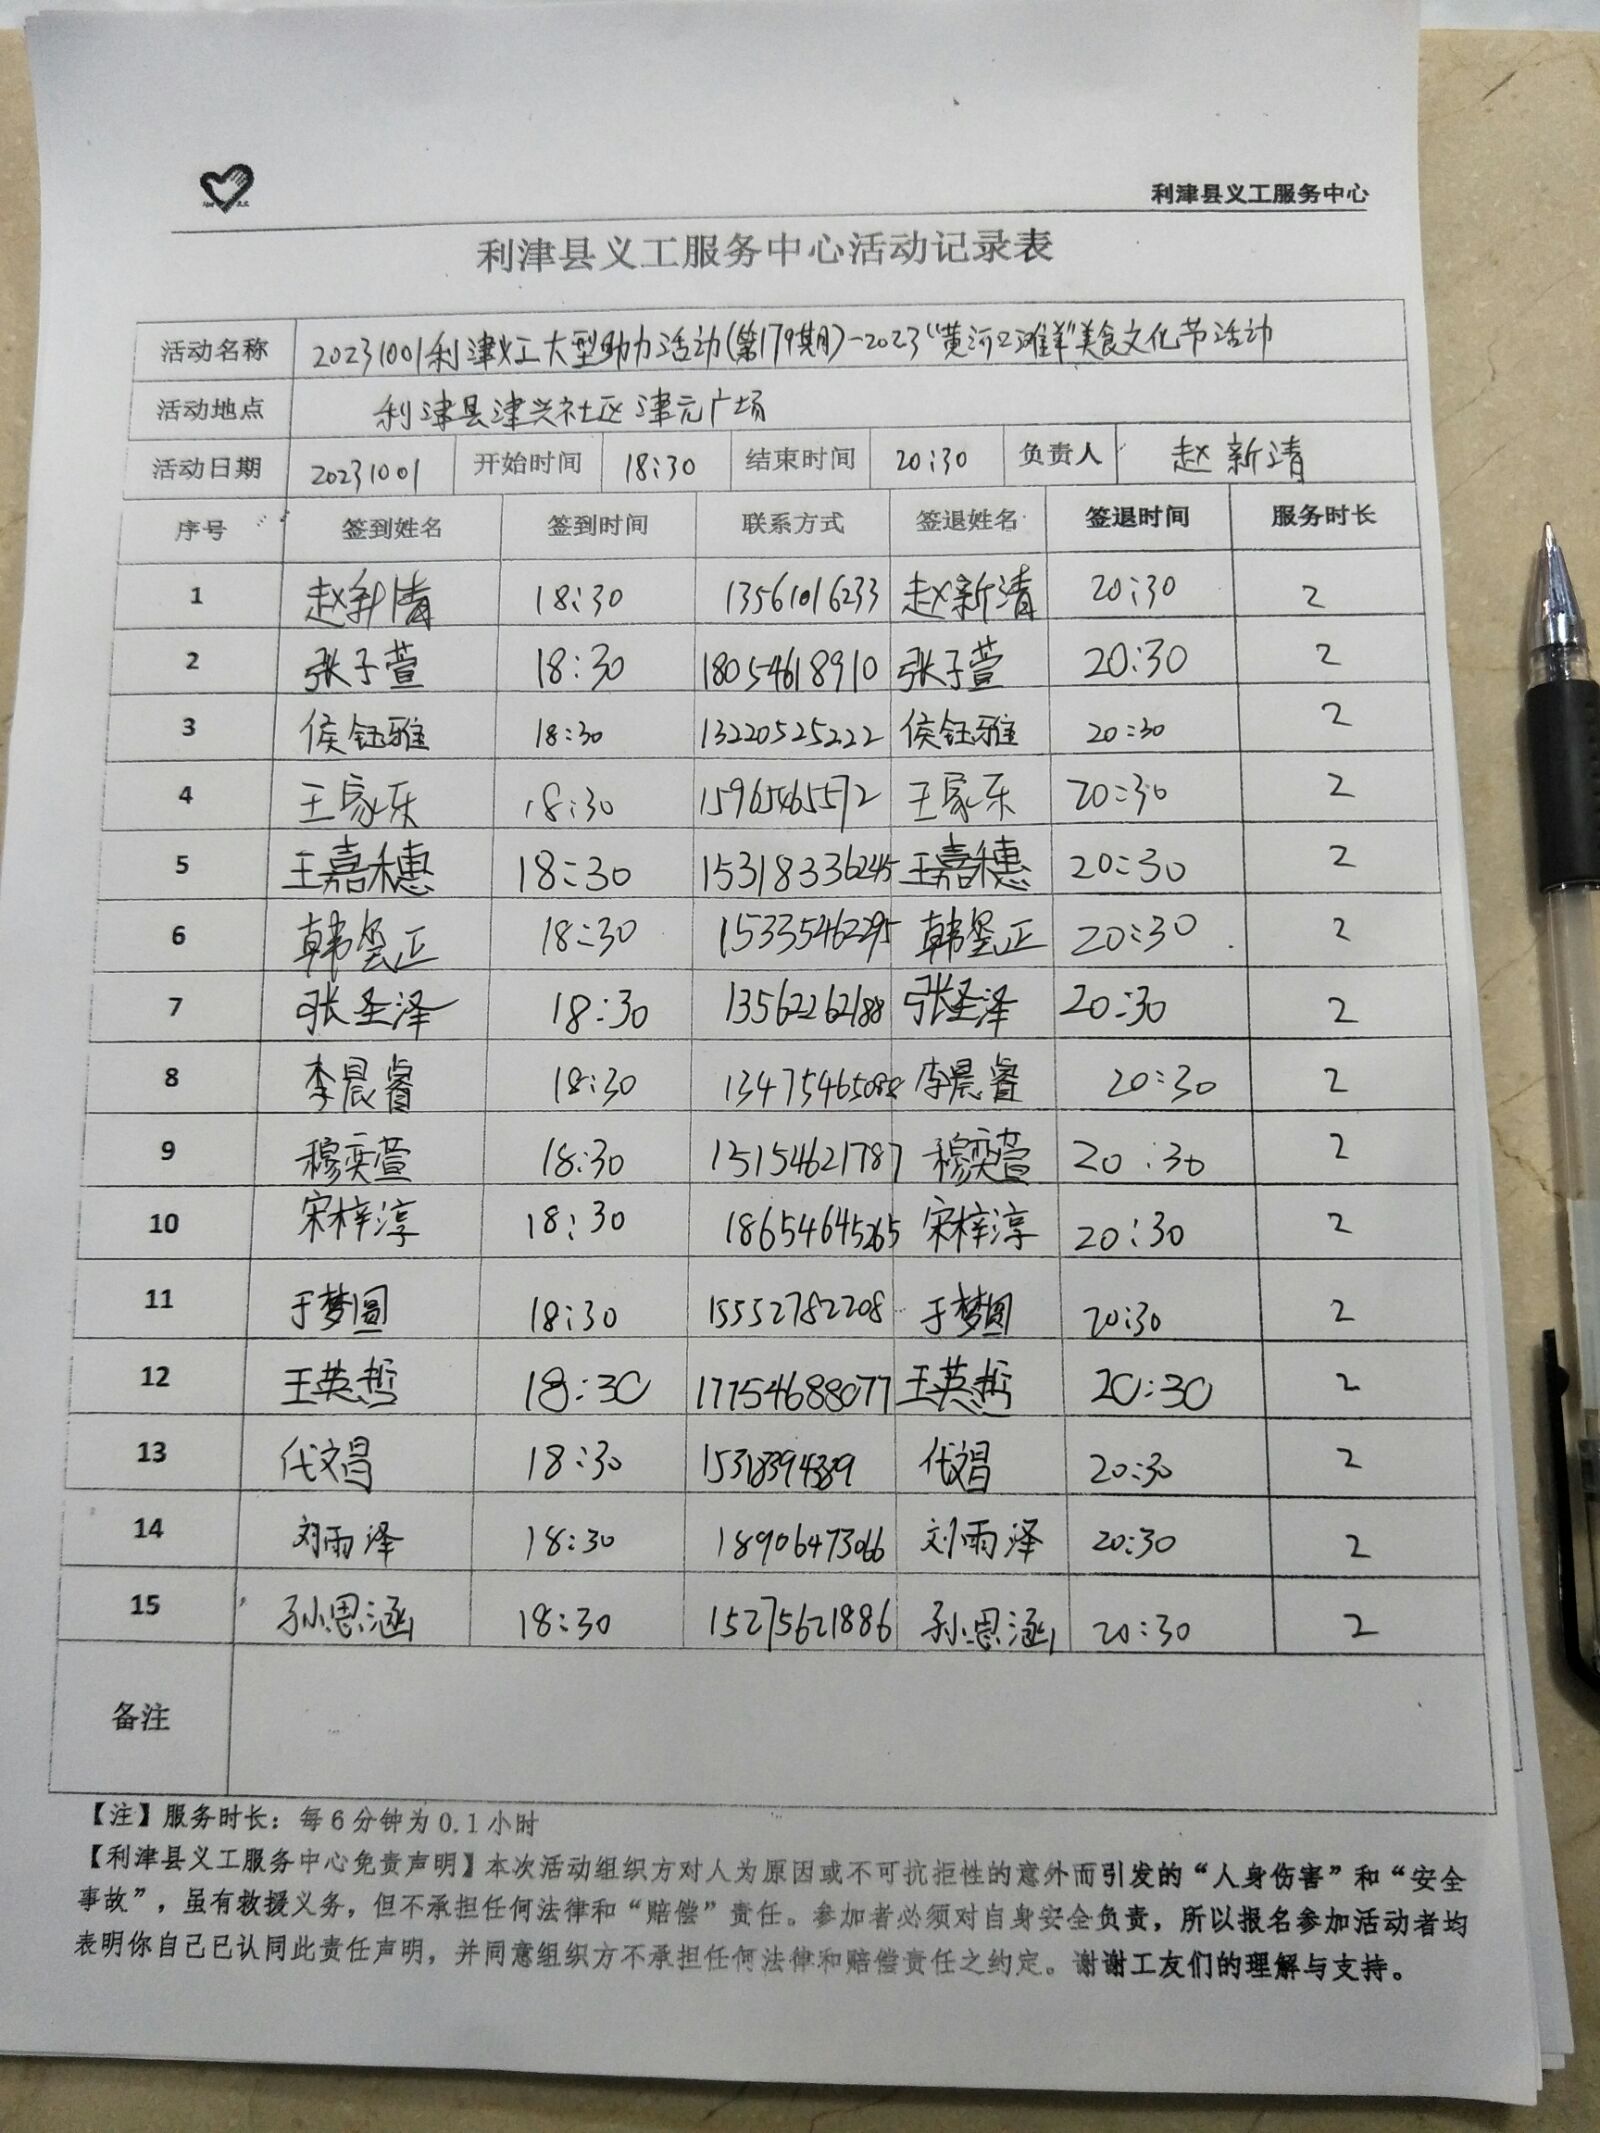 利津县义工服务中心
利津县义工服务中心活动记录表
活动名称 20231001利津义工大型助力活动(第179期)-2023"黄河口滩羊"美食文化节活动
活动地点 利津县津兴社区津元广场
活动日期 20231001 开始时间 18:30 结束时间 20:30 负责人 赵新清
序号 签到姓名 签到时间 联系方式 签退姓名 签退时间 服务时长
1 赵新清 18:30 13561016233 赵新清 20:30 2
2 张子萱 18:30 18054618910 张子萱 20:30 2
3 侯钰雅 18:30 13220525222 侯钰雅 20:30 2
4 王家乐 18:30 15965465572 王家乐 20:30 2
5 王嘉穗 18:30 15318336245 王嘉穗 20:30 2
6 韩垦正 18:30 15335462295 韩垦正 20:30 2
7 张圣泽 18:30 13562262188 张圣泽 20:30 2
8 李晨睿 18:30 13475465088 李晨睿 20:30 2
9 穆奕萱 18:30 15154621787 穆奕萱 20:30 2
10 宋梓淳 18:30 18654645265 宋梓淳 20:30 2
11 于梦圆 18:30 15552782208 于梦圆 20:30 2
12 王英哲 18:30 17754688077 王英哲 20:30 2
13 代文昌 18:30 15318394389 代文昌 20:30 2
14 刘雨泽 18:30 18906473066 刘雨泽 20:30 2
15 孙思涵 18:30 15275621886 孙思涵 20:30 2
备注
【注】服务时长：每6分钟为0.1小时
【利津县义工服务中心免责声明】本次活动组织方对人为原因或不可抗拒性的意外而引发的“人身伤害”和“安全
事故”，虽有救援义务，但不承担任何法律和“赔偿”责任。参加者必须对自身安全负责，所以报名参加活动者均
表明你自己已认同此责任声明，并同意组织方不承担任何法律和赔偿责任之约定。谢谢工友们的理解与支持。